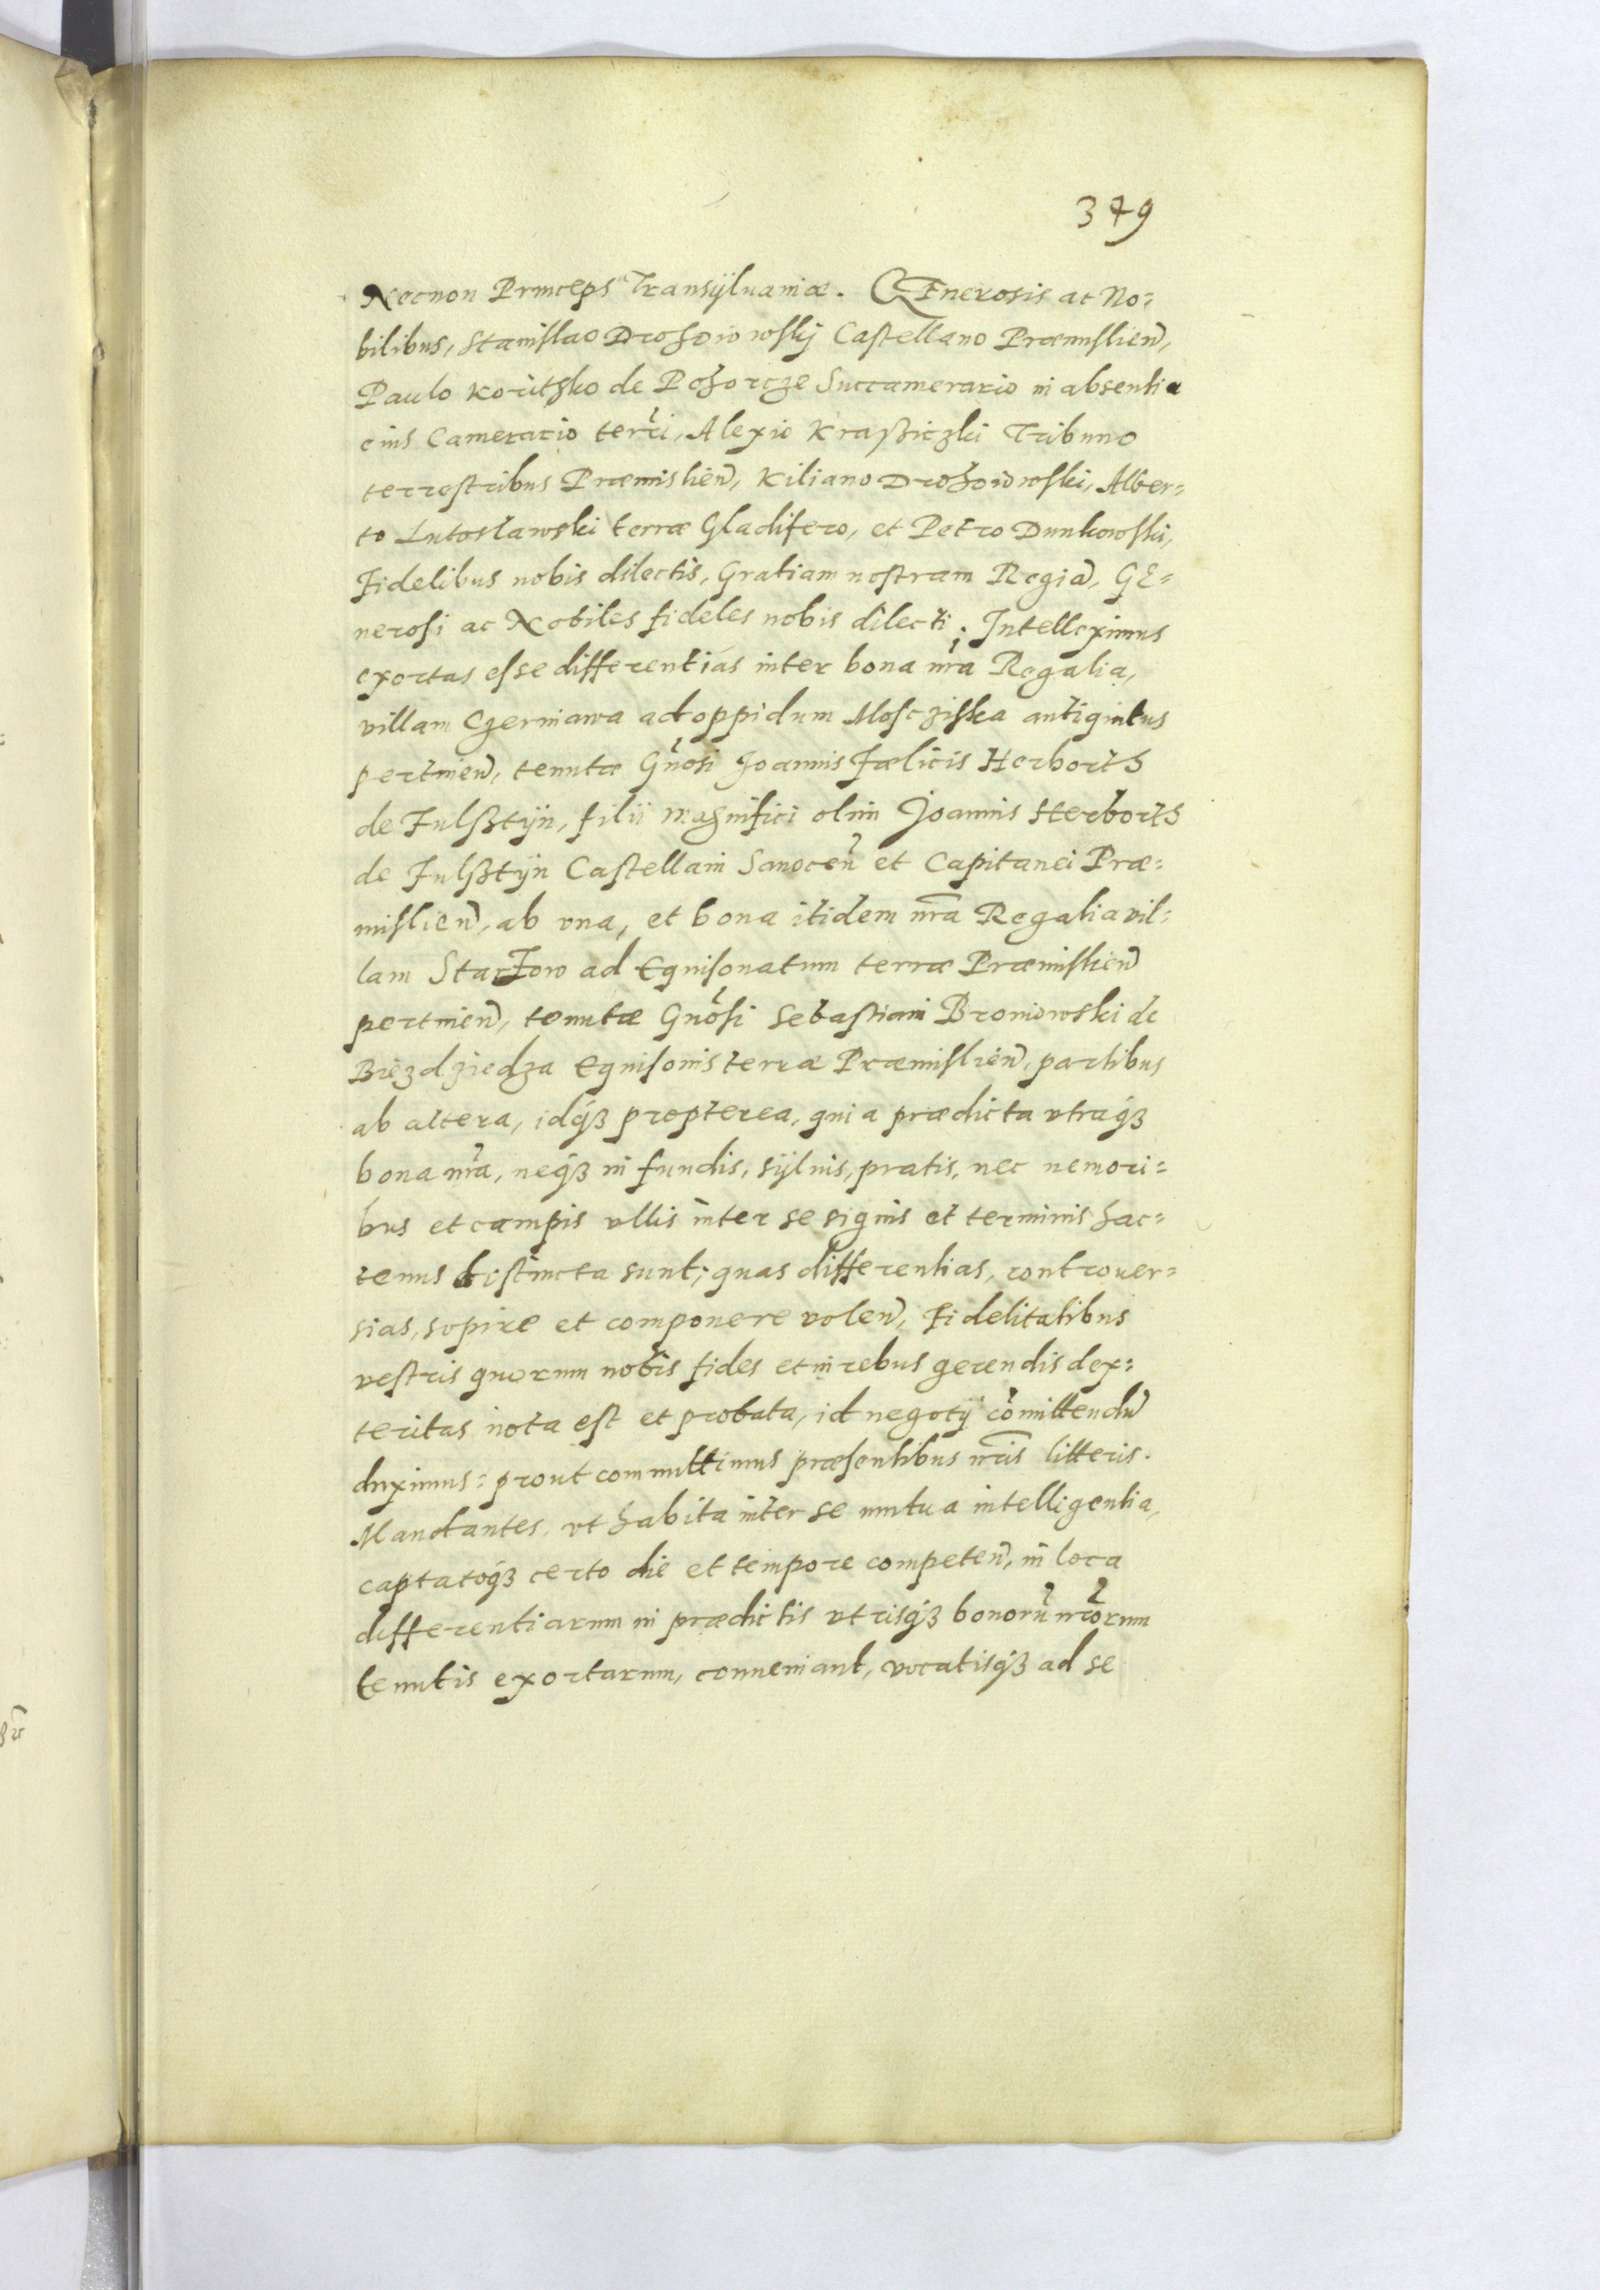 379
Necnon Princeps Transÿluaniæ. GEnerosis ac No=
bilibus, Stanislao Drohoiowskij Castellano Præmislien̄,
Paulo Koritßko de Pohorcze Succamerario in absentia
eius Camerario terr̃i, Alexio Kraßiczki Tribuno
terrestribus Præmislien̄, Kiliano Drohoiowski, Alber=
to Lutosławski terræ Gladifero, et Petro Dunkowski,
Fidelibus nobis dilectis, Gratiam nostram Regiā, GE=
nerosi ac Nobiles fideles nobis dilecti. Intelleximus
exortas esse differentias inter bona nr̃a Regalia,
villam Czerniawa ad oppidum Mosciska antiquitus
pertinen̄, tenutæ Gñosi Joannis Fælicis Herborth
de Fulßtÿn, filii magnifici olim Joannis Herborth
de Fulßtÿn Castellani Sanocen̄ et Capitanei Præ=
mislien̄, ab vna, et bona itidem nr̃a Regalia vil=
lam Starzow ad Equisonatum terræ Præmislien̄
pertinen̄, tenutæ Gñosi Sebastiani Broniowski de
Biezdziedza Equisonis terræ Præmislien̄, partibus
ab altera, idq́ꝫ propterea, quia prædicta vtraq́ꝫ
bona nr̃a, neq́ꝫ in fundis, sÿluis, pratis, nec nemori=
bus et campis vllis inter se signis et terminis hac=
tenus distincta sunt; quas differentias, controuer=
sias, sopire et componere volen̄, Fidelitatibus
vestris quorum nobis fides et in rebus gerendis dex=
teritas nota est et probata, id negotÿ com̃ittendū
duximus: prout committimus præsentibus nr̃is litteris.
Mandantes, vt habita inter se mutua intelligentia,
captatoq́ꝫ certo die et tempore competen̄, in loca
differentiarum in prædictis vtrisq́ꝫ bonorū nr̃orum
tenutis exortarum, conueniant, vocatisq́ꝫ ad se